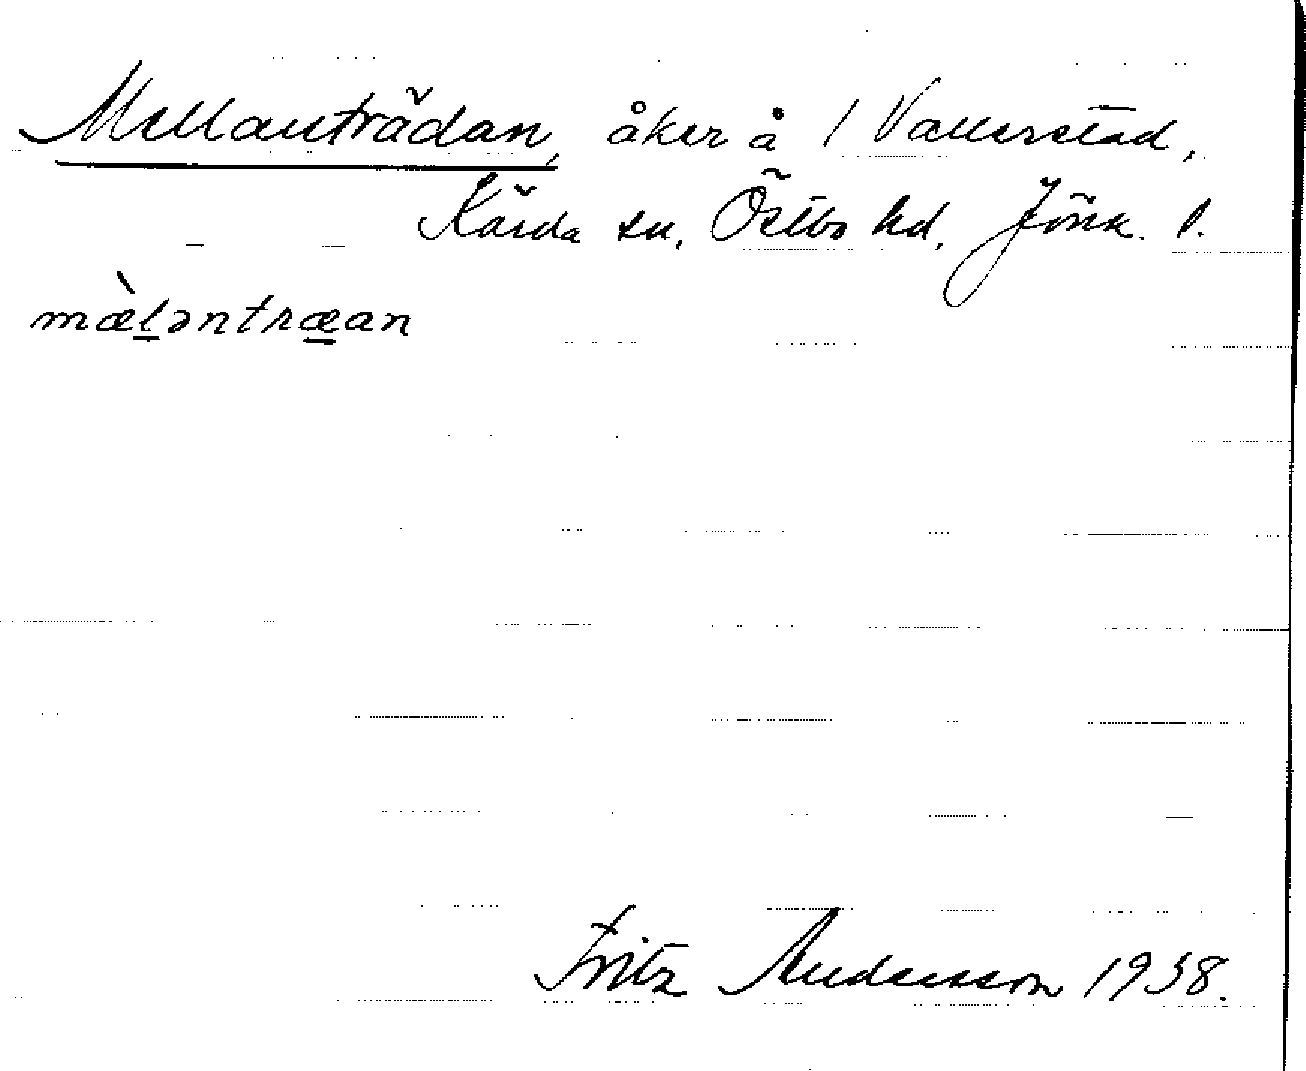 Mellanträdan, åker å 1 Vallerstad,
Kärda sn, Östbo hd, Jönk. l.
mæ̀l̠əntræ̠an
Fritz Andersson 1938.